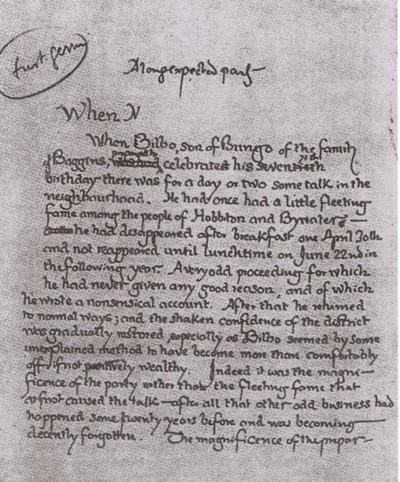 first germ
A long expected party
When N
When Bilbo, son of Bungo of the family
of Baggins, celebrated his seventieth
birthday there was for a day or two some talk in the
neighbourhood. He had once had a little fleeting
fame among the people of Hobbiton and Bywater –
he had disappeared after breakfast one April 30th
and not reappeared until lunchtime on June 22nd in
the following year. A very odd proceeding for which
he had never given any good reason, and of which
he wrote a nonsensical account. After that he returned
to normal ways; and the shaken confidence of the district
was gradually restored, especially as Bilbo seemed by some
unexplained method to have become more than comfortably
off, if not positively wealthy. Indeed it was the magni-
ficence of the party rather than the fleeting fame that
at first caused the talk – after all that other odd business had
happened some twenty years before and was becoming
decently forgotten. The magnificence of the prepar-